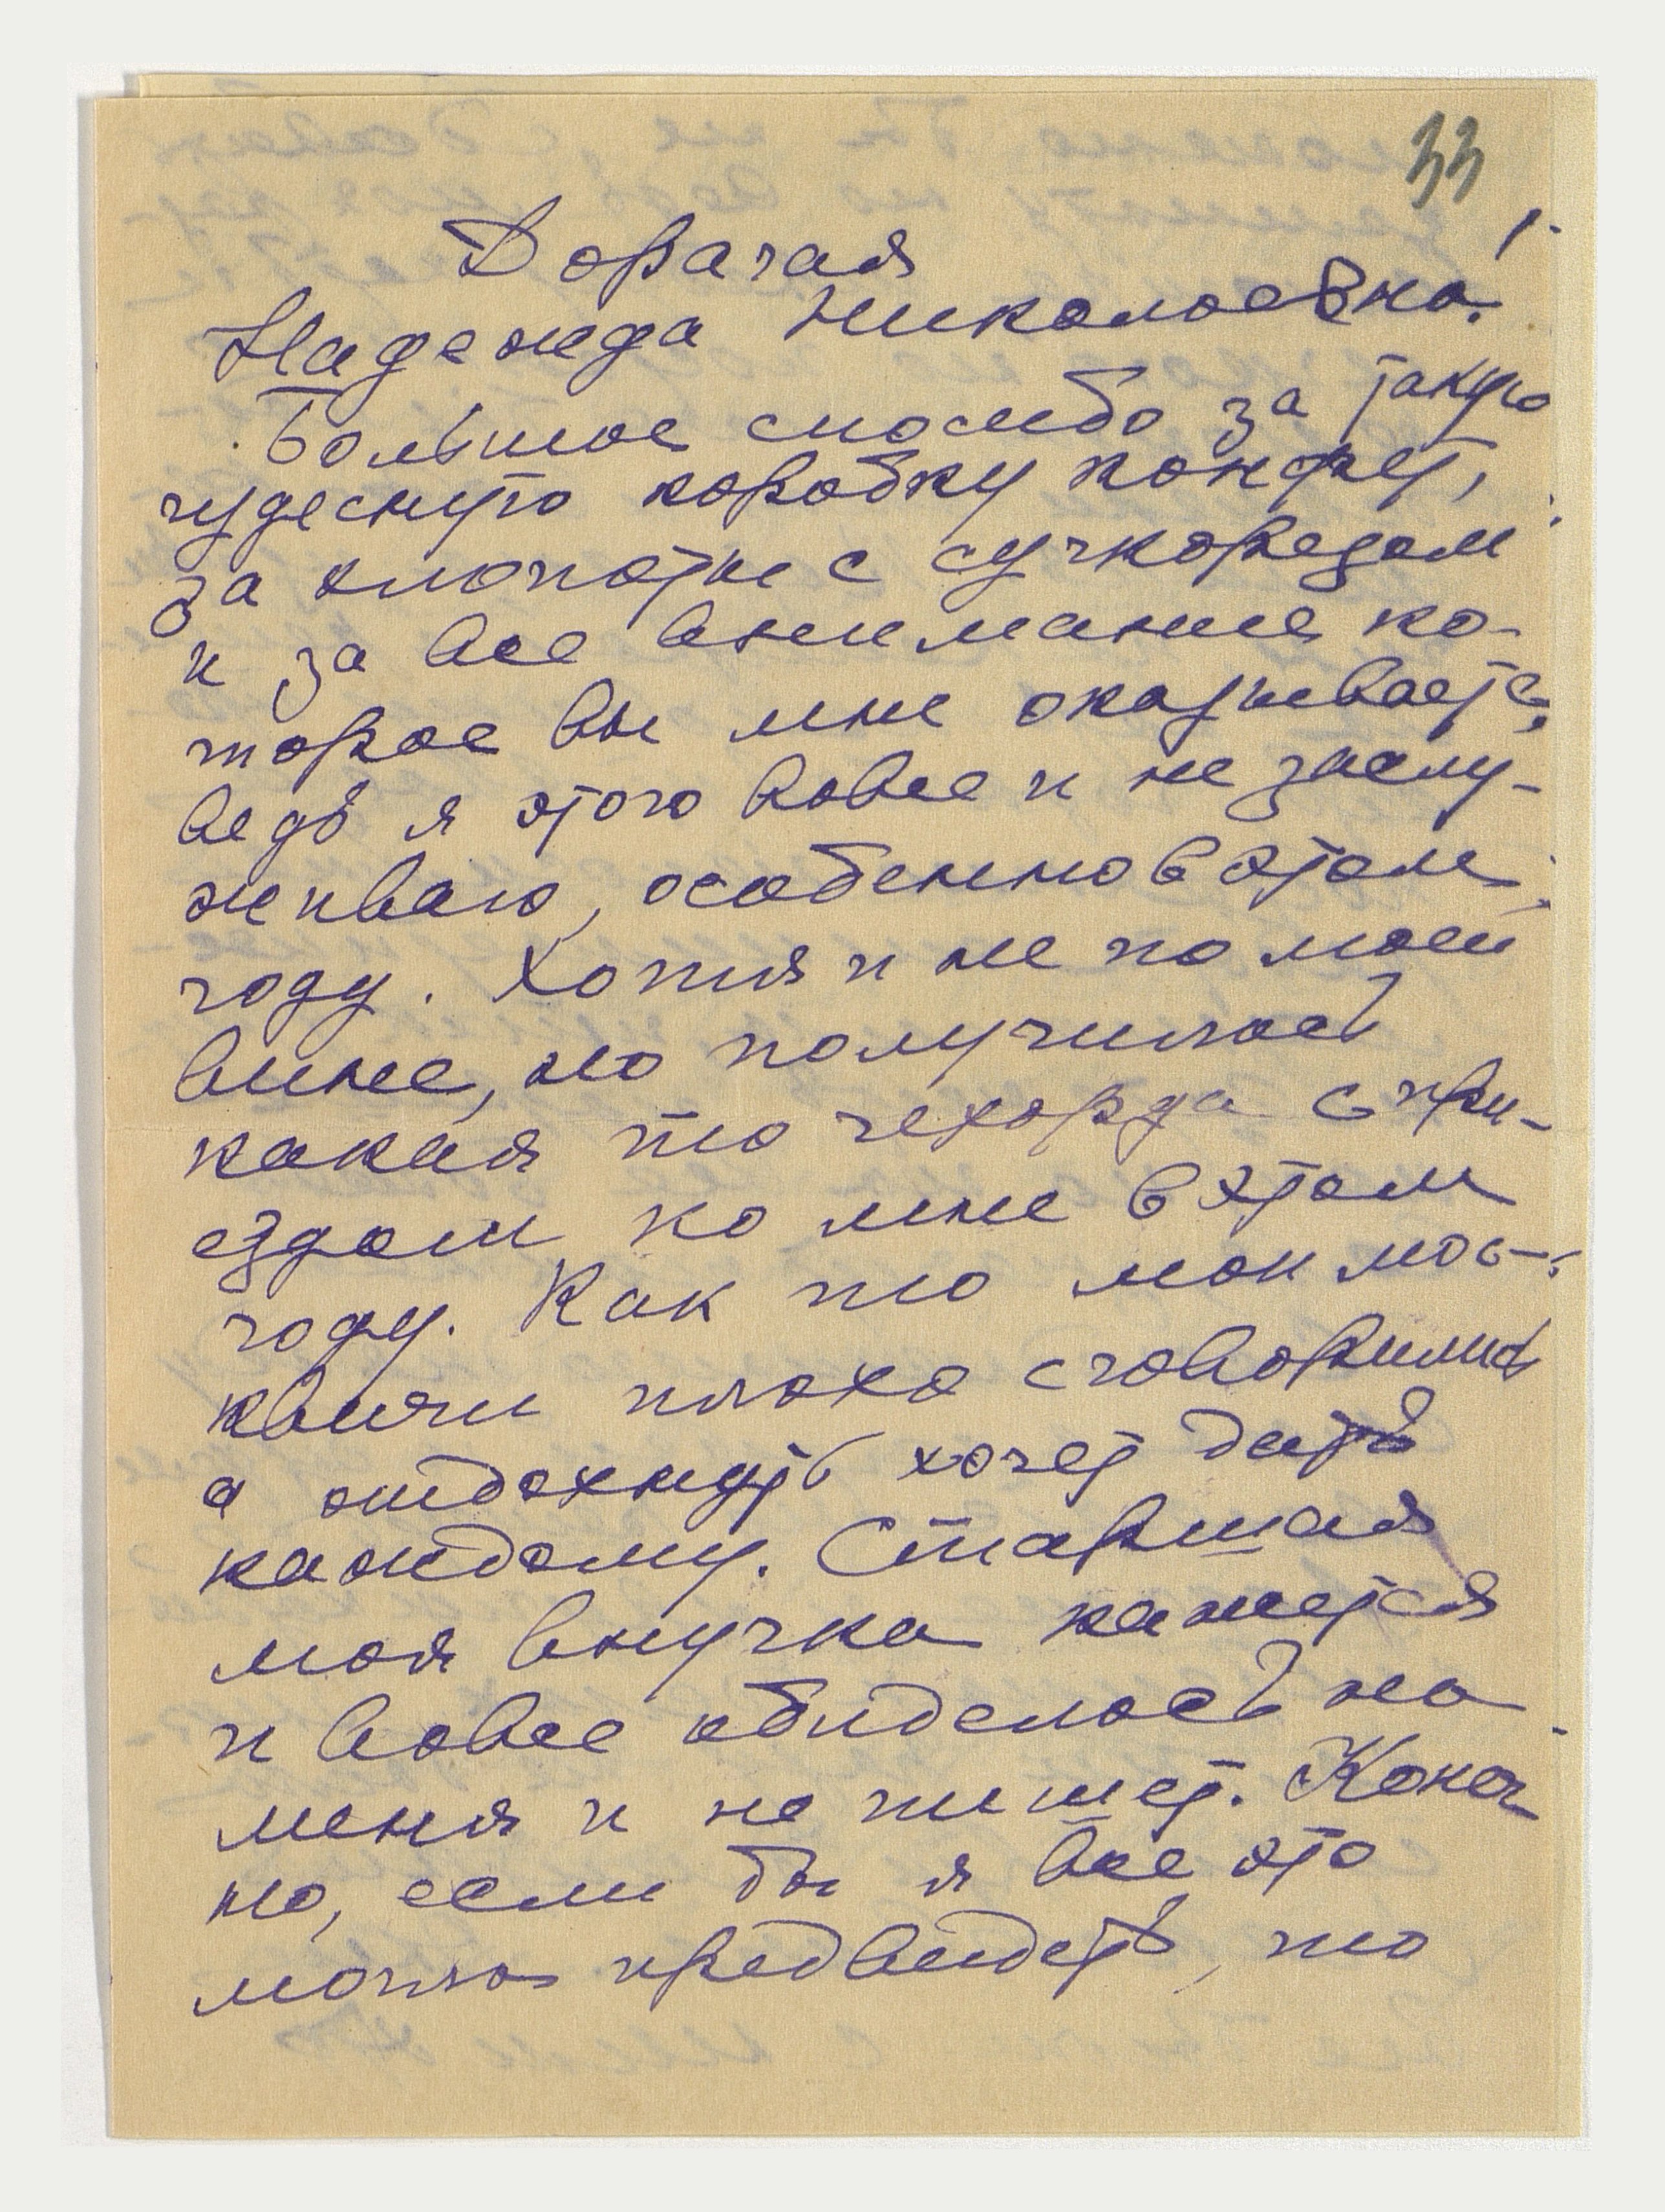 33
Дорогая
Надежда Николаевна!
Большое спасибо за такую
чудесную коробку конфет,
за хлопоты с сучкорезом
и за все внимание ко-
торое вы мне оказываете,
ведь я этого вовсе и не заслу-
живаю, особенно в этом
году. Хотя и не по моей
вине, но получилась
какая то чехарда с при-
ездом ко мне в этом
году. Как то мои мос-
квичи плохо сговорились
а отдохнуть хочется
каждому. Старшая
моя внучка кажется
и вовсе обиделась на
меня и не пишет. Конеч-
но, если бы я все это
могла предвидеть, то